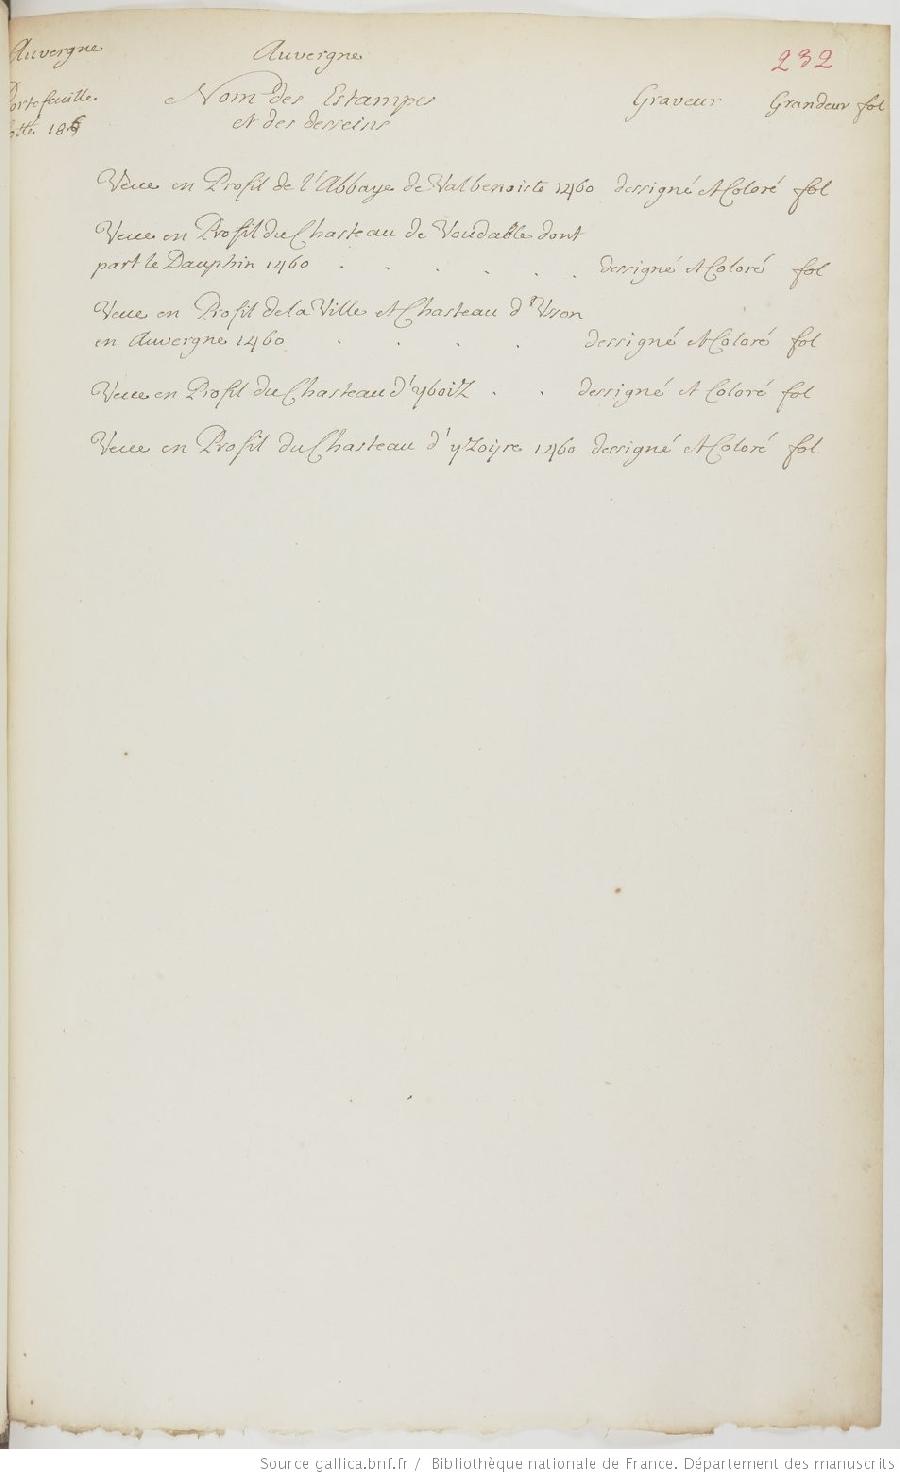 Auvergne Auvergne 232
Portefeuille Nom des Estampes Graveur Grandeur fol
Cotté 186 et des desseins
Veue en Profil de l'Abbaye de Valbenoiste 1460 dessigné et Coloré fol
Veue en Profil du Chasteau de Voudable dont
part le Dauphin 1460 . . . . . . dessigné et Coloré fol
Veue en Profil de la Ville et Chasteau d'Uson
en Auvergne 1460 . . . . dessigné et Coloré fol
Veue en Profil du Chasteau d'yboiZ . . dessigné et Coloré fol
Veue en Profil du Chasteau d'yZoijre 1460 dessigné et Coloré fol
Source gallica.bnf.fr / Bibliothèque nationale de France. Département des manuscrits